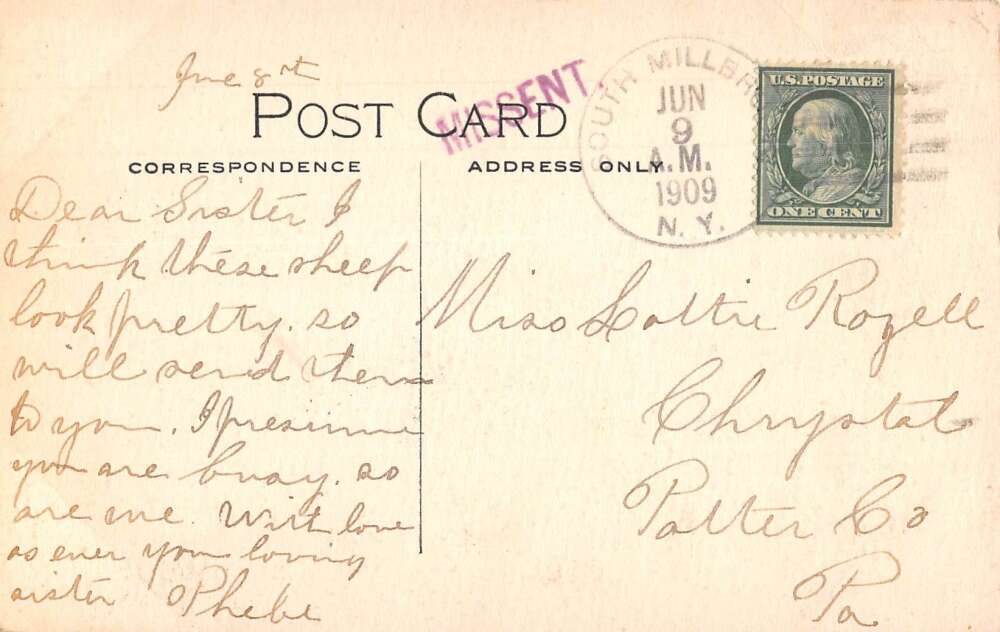 June 8th
POST CARD
MISSENT
CORRESPONDENCE
ADDRESS ONLY
SOUTH MILLBR
JUN
9
A.M.
1909
N. Y.
U.S. POSTAGE
ONE CENT
Dear Sister I
think these sheep
look pretty. so
will send them
to you. I presume
you are busy. so
are we. With love
as ever your loving
sister Phebe
Miss Lottie Rozell
Chrystal
Potter Co
Pa